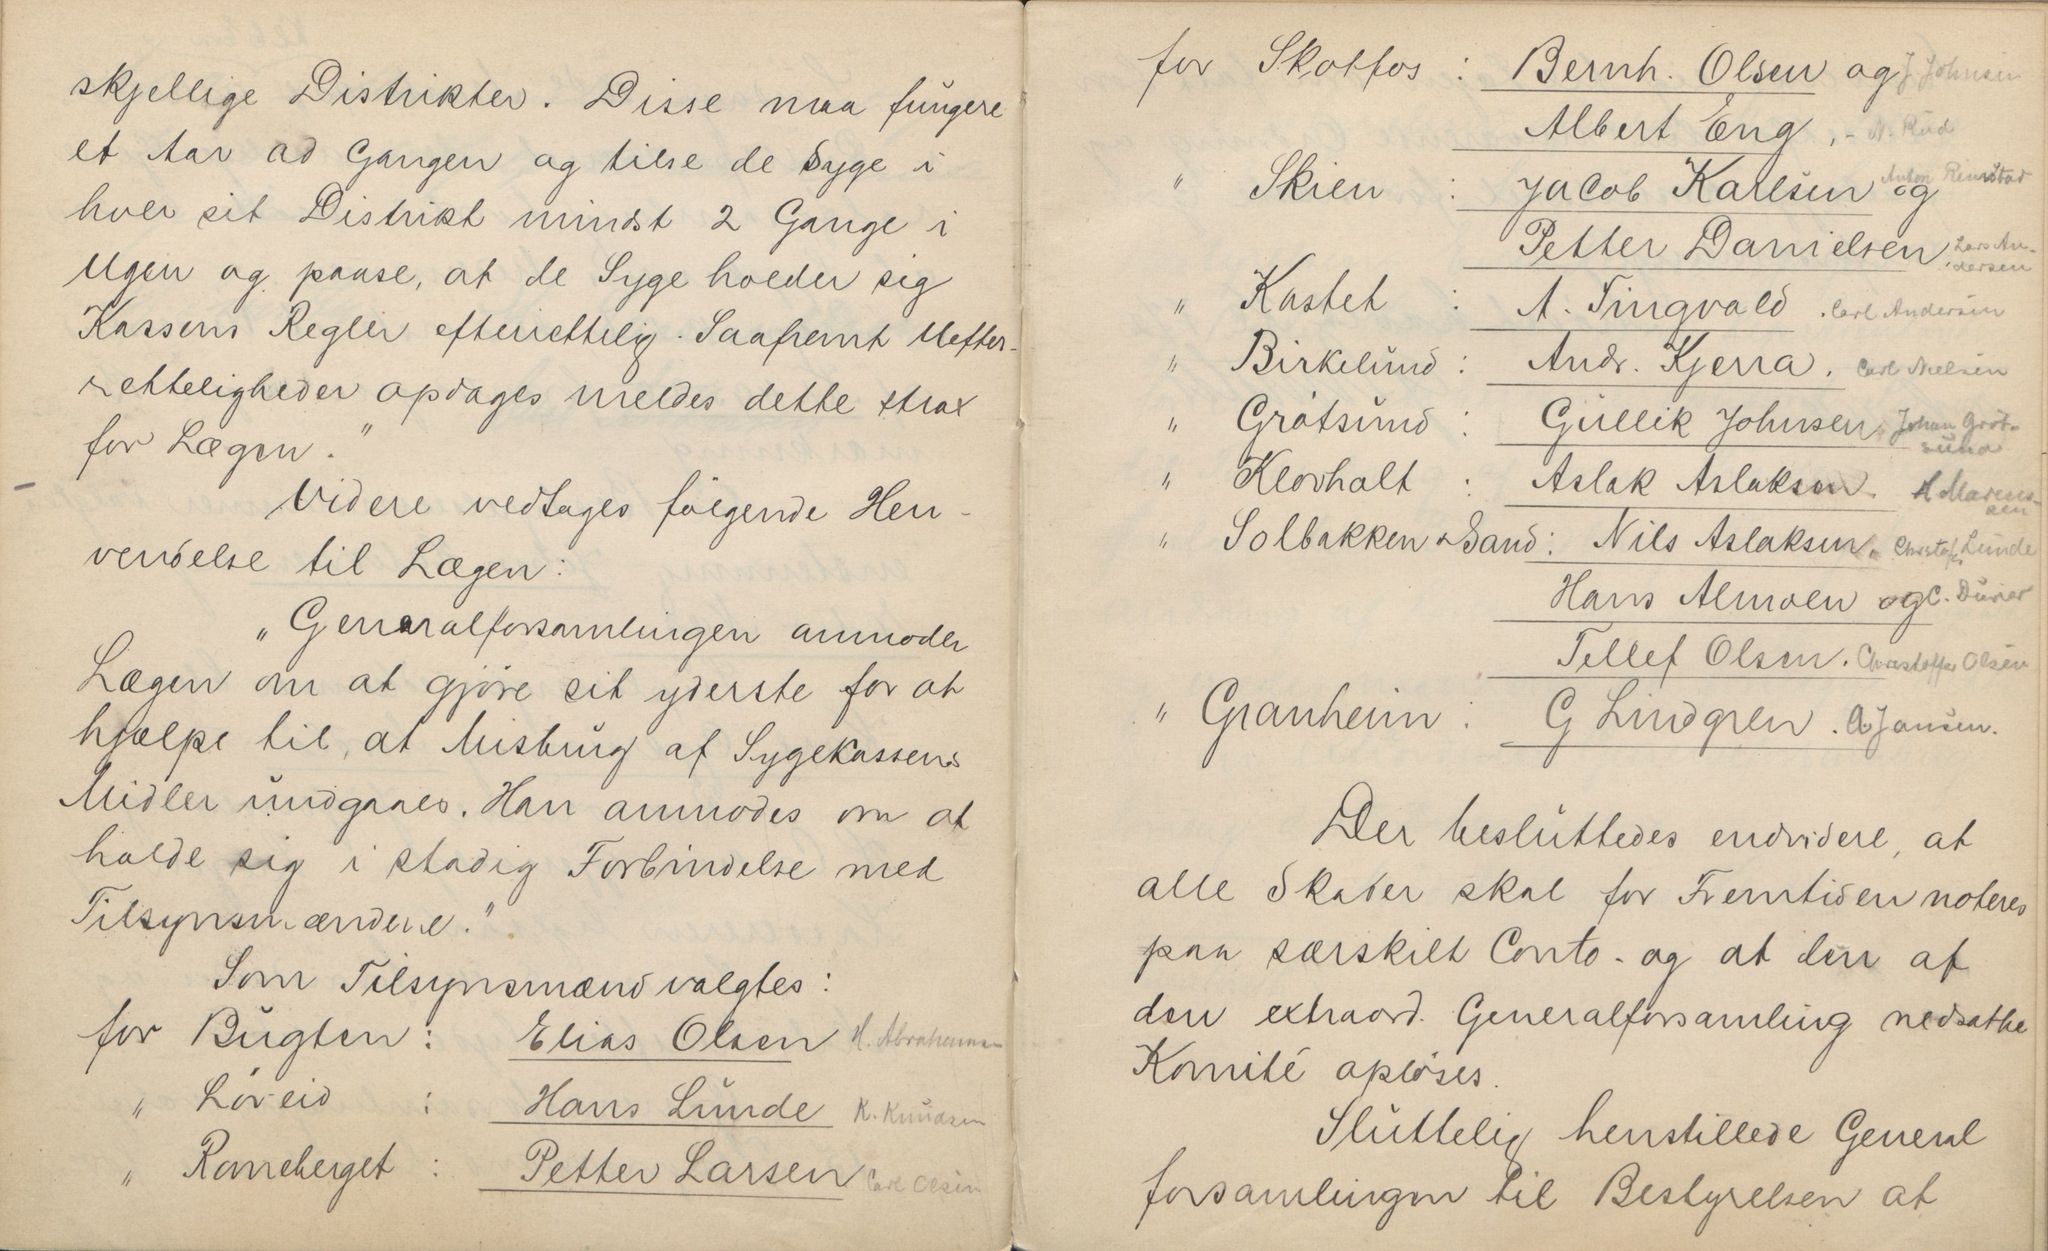 skjellige Distrikter. Disse maa fungere
et Aar ad Gangen og tilse de Syge i
hver sit Distrikt mindst 2 Gange i
Ugen og paase, at de Syge holder sig
Kassens Regler efterrettelig. Saafremt Uefter-
retteligheder opdages meldes dette strax
for Lægen."
Videre vedtages følgende Hen-
vendelse til Lægen:
"Generalforsamlingen anmoder
Lægen om at gjøre sit yderste for at
hjælpe til, at Misbrug af Sygekassens
Midler undgaaes. Han anmodes om at
holde sig i stadig Forbindelse med
Tilsynsmændene."
Som Tilsynsmænd valgtes:
for Bugten: Elias Olsen H. Abrahamsen
" Løveid : Hans Lunde K. Knudsen
" Rømeberget : Petter Larsen Carl Olsen
for Skotfos : Bernh. Olsen og J Johnsen
Albert Eng, - A. Rud
" Skien : Jacob Karlsen og Anton Rimstad
Petter Danielsen, Lars An-
dersen
" Kastet : A. Tingvald. Carl Andersen
" Birkelund : Andr. Kjerra. Carl Nielsen
" Grøtsund : Gullik Johnsen, Johan Grøt-
sund
" Klovholt : Aslak Aslaksen. A Marens-
sen
" Solbakken & Sand: Nils Aslaksen. Christof. Lunde
Hans Almoen og C. Durer
Tellef Olsen. Christoffer Olsen
" Granheim : G Lindgren. A. Jansen.
Der besluttedes endvidere, at
alle Skader skal for Fremtiden noteres
paa særskilt Conto - og at den af
den extraord. Generalforsamling nedsatte
Komité opløses.
Sluttelig henstillede General
forsamlingen til Bestyrelsen at